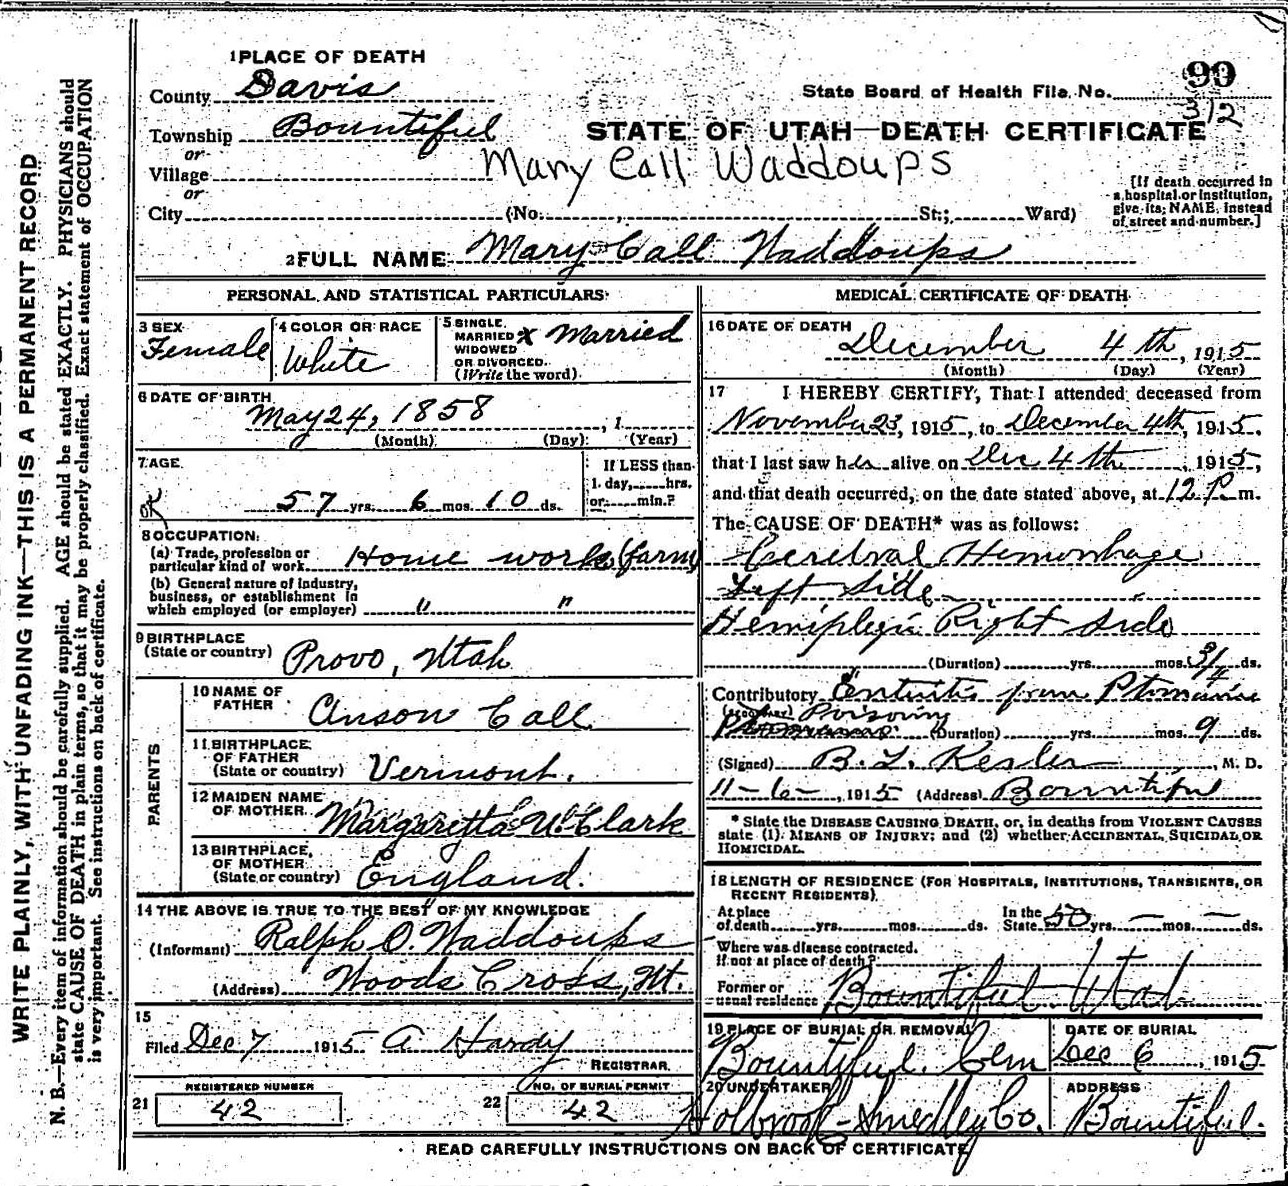 1 PLACE OF DEATH
County Davis
State Board of Health File No. 99
312
Township Bountiful
or
STATE OF UTAH—DEATH CERTIFICATE
Village
or
Mary Call Waddoups
City (No. , St.; Ward)
[If death occurred in
a hospital or institution,
give its NAME instead
of street and number.]
2 FULL NAME Mary Call Waddoups
PERSONAL AND STATISTICAL PARTICULARS
3 SEX
Female
4 COLOR OR RACE
White
5 SINGLE,
MARRIED x Married
WIDOWED
OR DIVORCED.
(Write the word)
6 DATE OF BIRTH
May 24, 1858 , 1
(Month) (Day) (Year)
7 AGE
OK 57 yrs. 6 mos. 10 ds.
If LESS than
1 day, hrs.
or min.?
8 OCCUPATION:
(a) Trade, profession or
particular kind of work Home work (farm)
(b) General nature of industry,
business, or establishment in
which employed (or employer) " "
9 BIRTHPLACE
(State or country) Provo, Utah
PARENTS
10 NAME OF
FATHER Anson Call
11 BIRTHPLACE
OF FATHER
(State or country) Vermont.
12 MAIDEN NAME
OF MOTHER Margaretta U. Clark
13 BIRTHPLACE
OF MOTHER
(State or country) England.
14 THE ABOVE IS TRUE TO THE BEST OF MY KNOWLEDGE
(Informant) Ralph O. Waddoups
(Address) Woods Cross, Ut.
15
Filed Dec 7 1915 A Hardy
REGISTRAR.
REGISTERED NUMBER
21 42
NO. OF BURIAL PERMIT
22 42
MEDICAL CERTIFICATE OF DEATH
16 DATE OF DEATH
December 4th , 1915
(Month) (Day) (Year)
17 I HEREBY CERTIFY, That I attended deceased from
November 23, 1915, to December 4th, 1915,
that I last saw her alive on Dec 4th , 1915,
and that death occurred, on the date stated above, at 12 P m.
The CAUSE OF DEATH* was as follows:
Cerebral Hemorrhage
Left Side
Hemiplegia Right Side
(Duration) yrs. mos. 3/4 ds.
Contributory Entuitis from Ptomaine
(SECONDARY) Poisoning
(Duration) yrs. mos. 9 ds.
(Signed) B. L. Kesler , M. D.
11-6- , 1915 (Address) Bountiful
* State the DISEASE CAUSING DEATH, or, in deaths from VIOLENT CAUSES
state (1) MEANS OF INJURY; and (2) whether ACCIDENTAL, SUICIDAL OR
HOMICIDAL.
18 LENGTH OF RESIDENCE (FOR HOSPITALS, INSTITUTIONS, TRANSIENTS, OR
RECENT RESIDENTS).
At place
of death yrs. mos. ds.
In the
State 50 yrs. — mos. — ds.
Where was disease contracted,
if not at place of death?
Former or
usual residence Bountiful Utah
19 PLACE OF BURIAL OR REMOVAL
Bountiful Cem
DATE OF BURIAL
Dec 6 , 1915
20 UNDERTAKER
Holbrook-Smedley Co.
ADDRESS
Bountiful.
READ CAREFULLY INSTRUCTIONS ON BACK OF CERTIFICATE
WRITE PLAINLY, WITH UNFADING INK—THIS IS A PERMANENT RECORD
N. B.—Every item of information should be carefully supplied. AGE should be stated EXACTLY. PHYSICIANS should
state CAUSE OF DEATH in plain terms, so that it may be properly classified. Exact statement of OCCUPATION
is very important. See instructions on back of certificate.